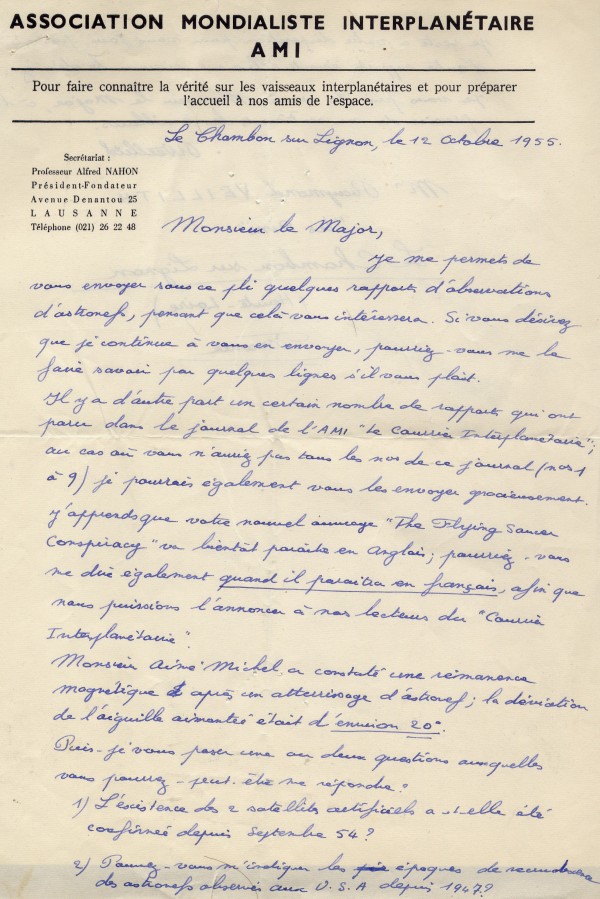 ASSOCIATION MONDIALISTE INTERPLANÉTAIRE
AMI
Pour faire connaître la vérité sur les vaisseaux interplanétaires et pour préparer
l'accueil à nos amis de l'espace.
Le Chambon sur Lignon, le 12 Octobre 1955.
Secrétariat :
Professeur Alfred NAHON
Président-Fondateur
Avenue Denantou 25
LAUSANNE
Téléphone (021) 26 22 48
Monsieur le Major,
Je me permets de
vous envoyer sous ce pli quelques rapport d'observations
d'astronefs, pensant que celà vous intéressera. Si vous désirez
que je continue à vous en envoyer, pourriez-vous me le
faire savoir par quelques lignes s'il vous plait.
Il y a d'autre part un certain nombre de rapports qui ont
paru dans le journal de l'AMI "Le Courrier Interplanétaire";
au cas où vous n'auriez pas tous les nos de ce journal (nos 1
à 9) je pourrais également vous les envoyer gracieusement.
J'apprends que votre nouvel ouvrage "The Flying Saucer
Conspiracy" va bientôt paraître en Anglais; pourriez-vous
me dire également quand il paraîtra en français, afin que
nous puissions l'annoncer à nos lecteurs du "Courrier
Interplanétaire".
Monsieur Aimé Michel, a constaté une rémanence
magnétique après un atterrissage d'astronef; la déviation
de l'aiguille aimantée était d'environ 20°.
Puis-je vous poser une ou deux questions auxquelles
vous pourrez-peut-être me répondre?
1) L'éxistence des 2 satellites artificiels a-t-elle été
confirmée depuis Septembre 54?
2) Pouvez-vous m'indiquer les époques de recrudescence
des astronefs observés aux U.S.A depuis 1947?